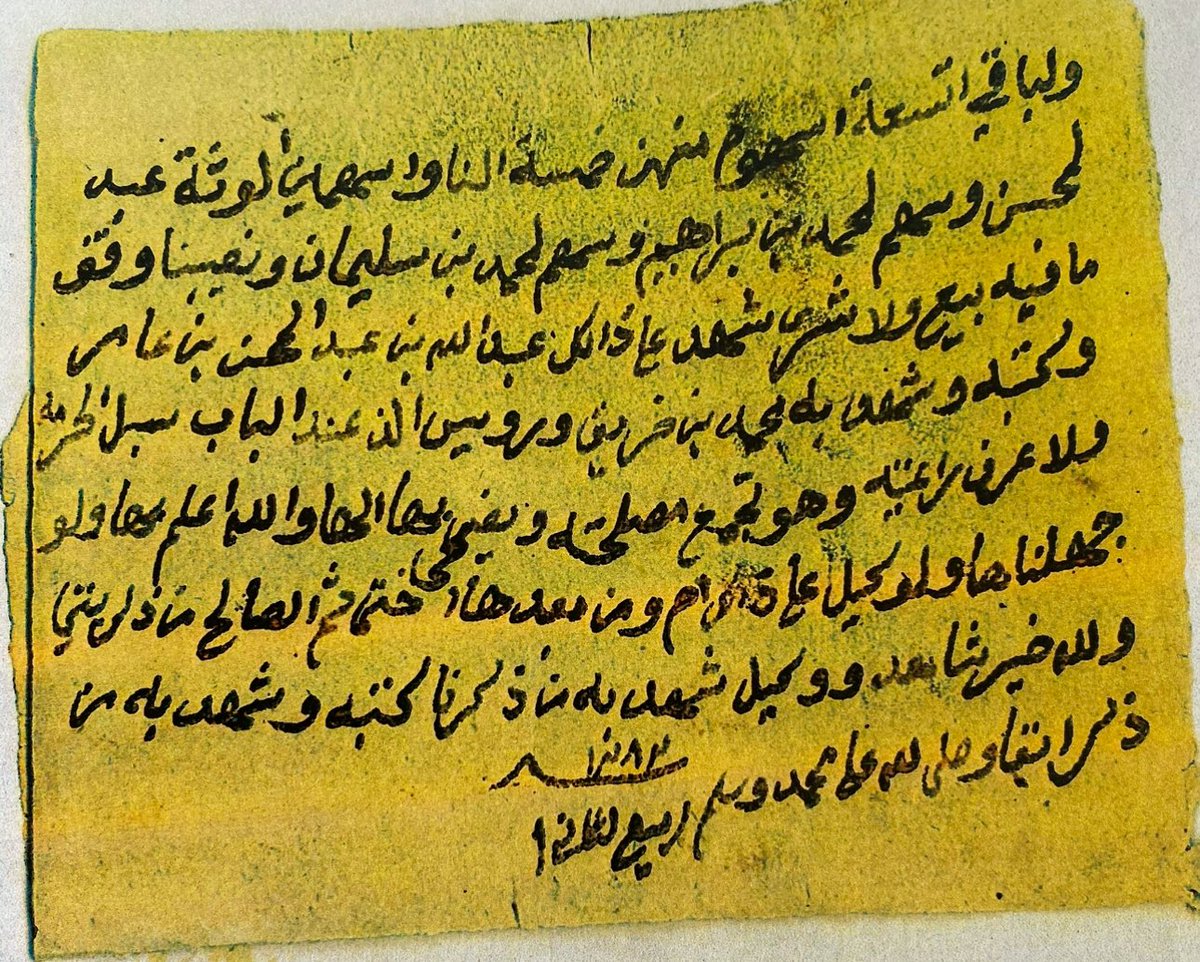 ولباقي اتسعة اسهوم منهن خمسة النا وسهمين لورثة عبد
لمحسن وسهم لمحمد بن براهيم وسهم لمحمد بن سليمان ونصيبنا وقف
ما فيه بيع ولا شرا شهد عا ذالك عبد الله بن عبد المحسن بن عامر
وكتبه وشهد به محمد بن خرين ورويس الذ عند الباب سبل
ولا عرف وهو تجمع مصلحته والله اعلم بها ولو
جهلناها ولوكيل عا ومن بعدها ختي ثم الصالح من ذريتي
ولله خير شاهد ووكيل شهد به من ذكرنا كتبه وشهد به من
ذكر وصلى لله على محمد وسلم ربيع
١٢٨٣